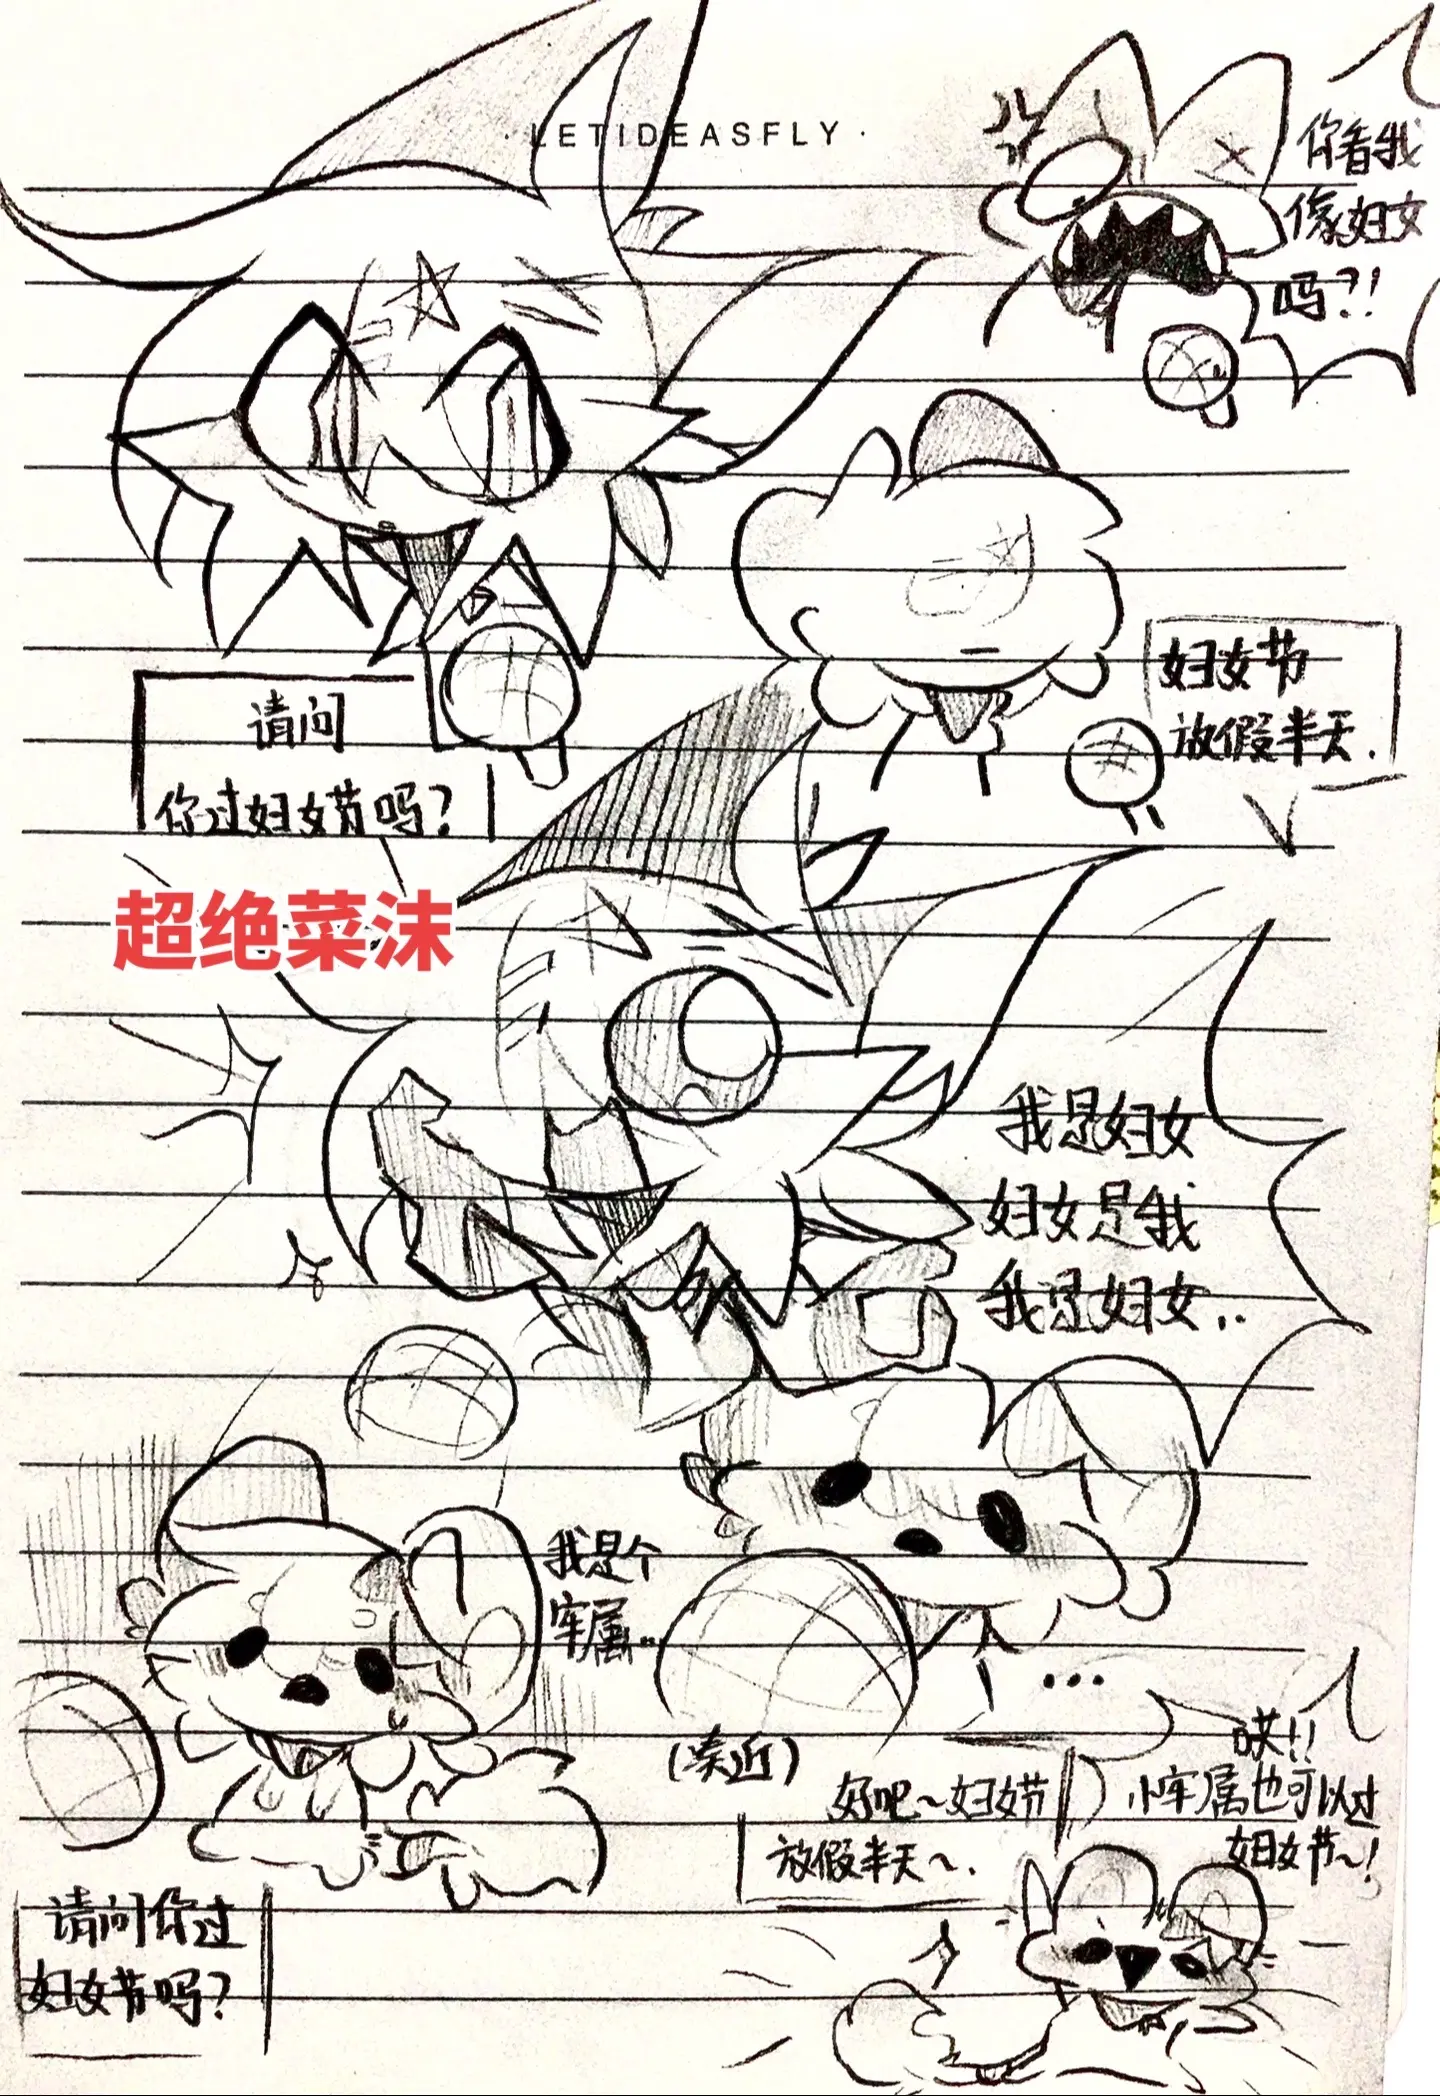 · LETIDEASFLY ·
你看我
像妇女
吗?!
请问
你过妇女节吗?
妇女节
放假半天.
超绝菜沫
我是妇女
妇女是我
我是妇女..
我是个
牢属..
...
(凑近)
请问你过
妇女节吗?
好吧~妇女节
放假半天~.
哎!!
小牢属也可以过
妇女节~!